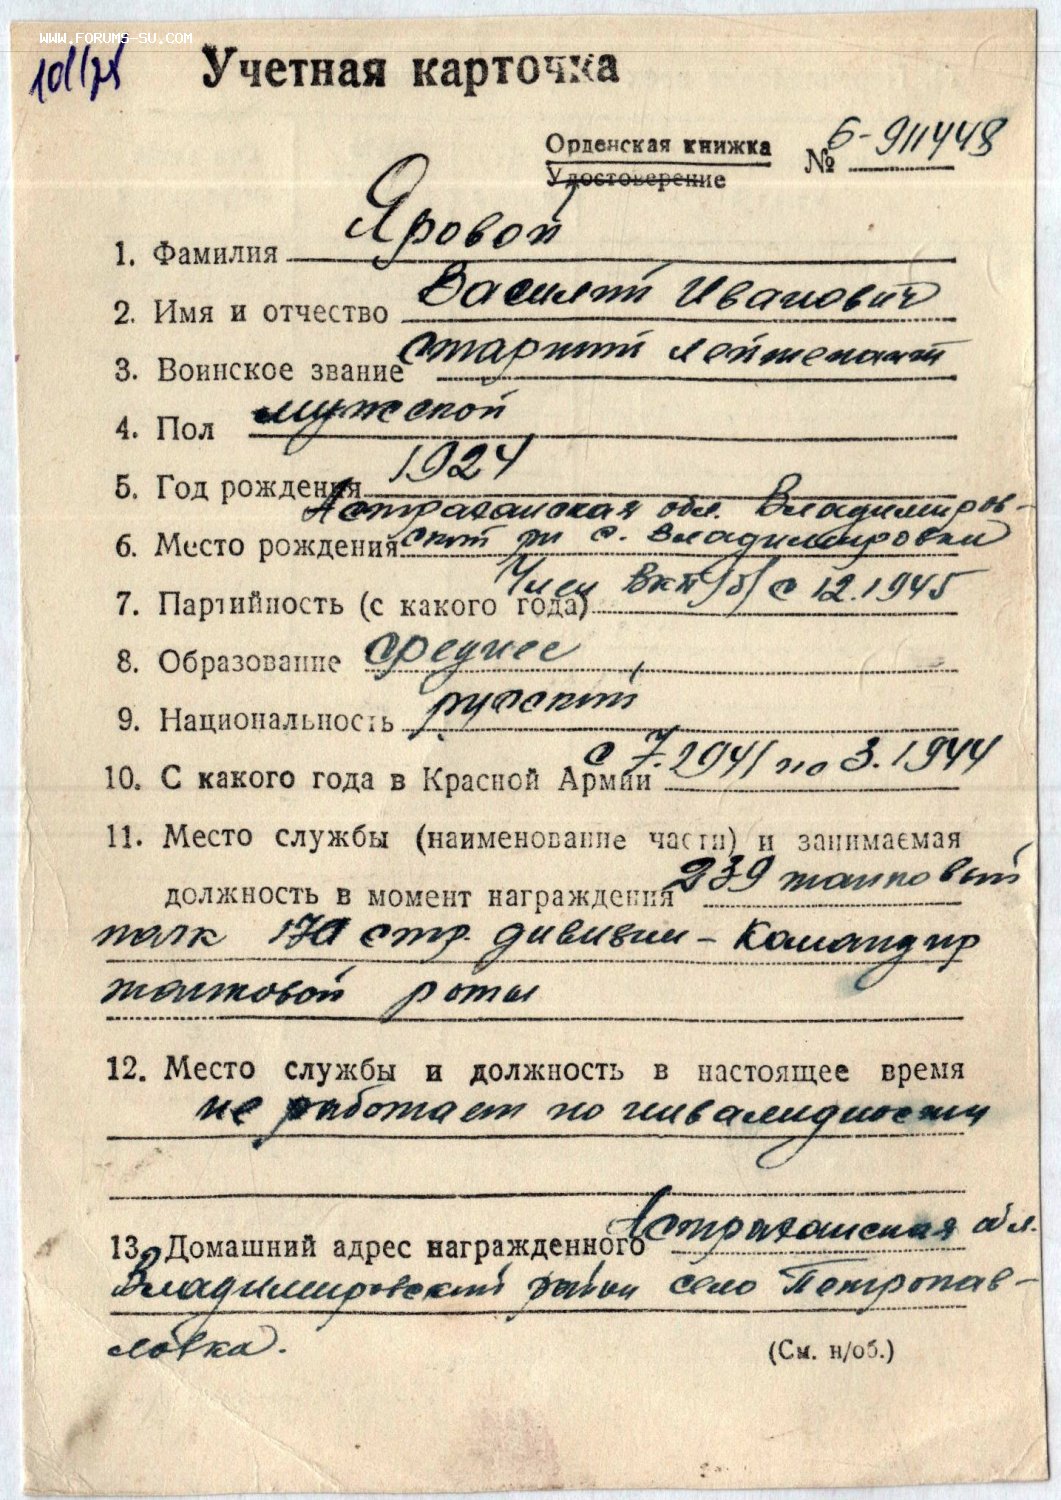 WWW.FORUMS-SU.COM
Учетная карточка
Орденская книжка № Б-911448
Удостоверение
1. Фамилия Яровой
2. Имя и отчество Василий Иванович
3. Воинское звание старший лейтенант
4. Пол мужской
5. Год рождения 1924
Астраханская обл. Владимиров-
6. Место рождения ский рн с. Владимировка
7. Партийность (с какого года) Член ВКП(б) с 12.1945
8. Образование среднее
9. Национальность русский
10. С какого года в Красной Армии с 7.1941 по 3.1944
11. Место службы (наименование части) и занимаемая
должность в момент награждения 239 танковый
полк 170 стр. дивизии – Командир
танковой роты
12. Место службы и должность в настоящее время
не работает по инвалидности
13. Домашний адрес награжденного Астраханская обл.
Владимировский район село Петропав-
ловка.
(См. н/об.)